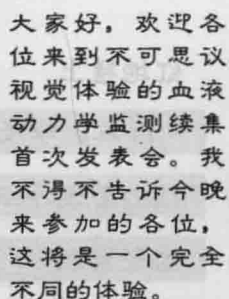 大家好，欢迎各
位来到不可思议
视觉体验的血液
动力学监测续集
首次发表会。我
不得不告诉今晚
来参加的各位，
这将是一个完全
不同的体验。